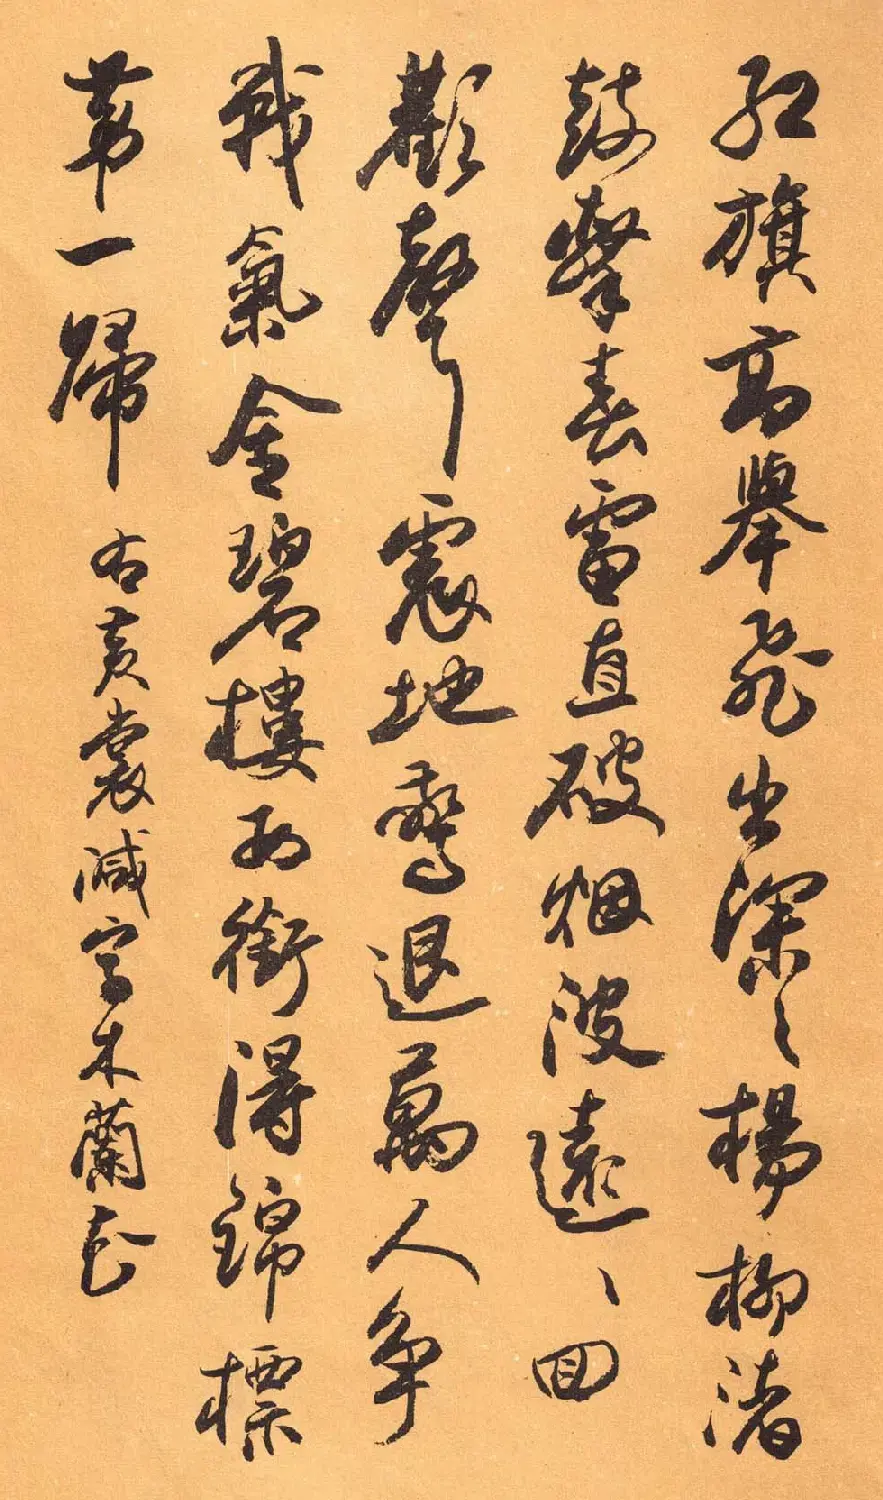 紅旗高舉飛出深〻楊柳渚
鼓擊春雷直破烟波遠〻回
歡聲震地驚退萬人爭
戰氣金碧樓西銜得錦標
第一歸 右黃裳減字木蘭花